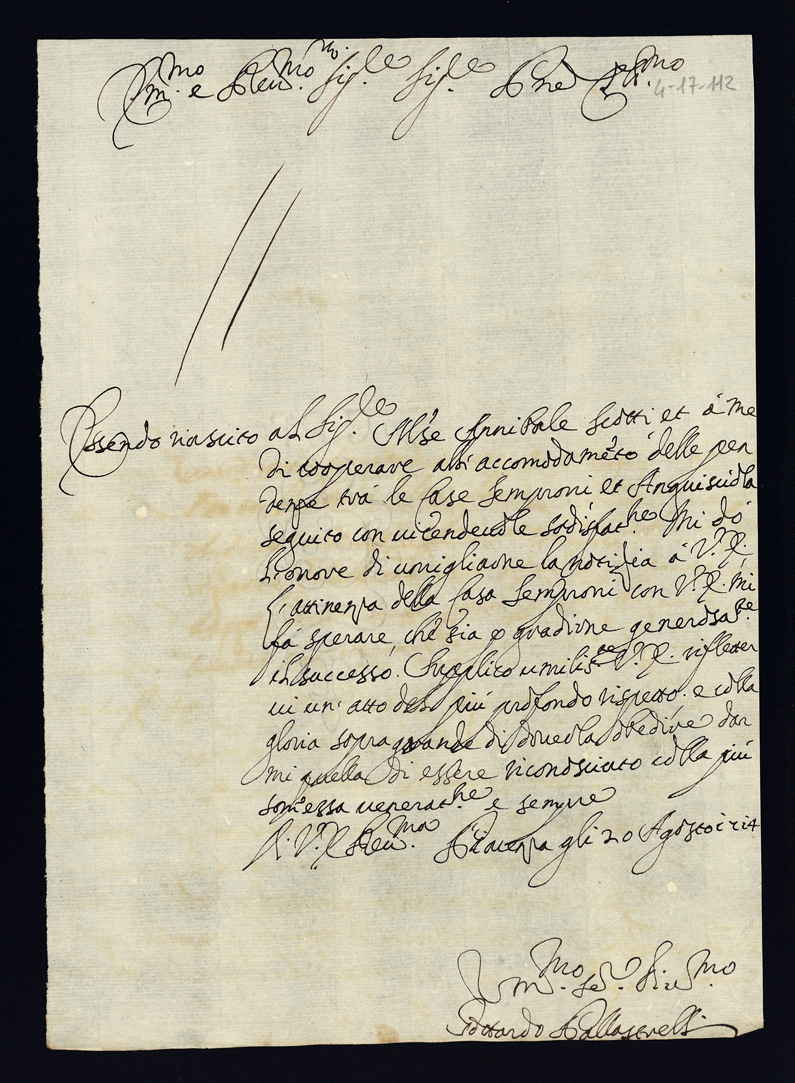 Em.mo e Reu.mo Sig.re Sig.re Pne Col.mo
4-17-112
Essendo riascito al Sig.re M'se Annibale Scotti et à me
di cooperare all'accomodam.to delle pen
denze trà le Case Semproni et Anguisciola
seguito con uicendeuole sodisfat.ne Mi dò
l'onore di umigliarne la notizia à V.E.
L'attinenza della Casa Semproni con V.E. mi
fà sperare che sia p gradirne generosa.te
il successo. Supplico umilis.te V.E. rifletter
ui un' atto del più profondo rispetto: e colla
gloria sopragrande di douerla obedire dar
mi quella di essere riconosciuto colla più
somessa venerat.ne e sempre
Di V.E. Reu.ma Piacenza gli 20 Agosto 1714
Um.mo se.e Diu.mo
Gottardo Pallastrelli